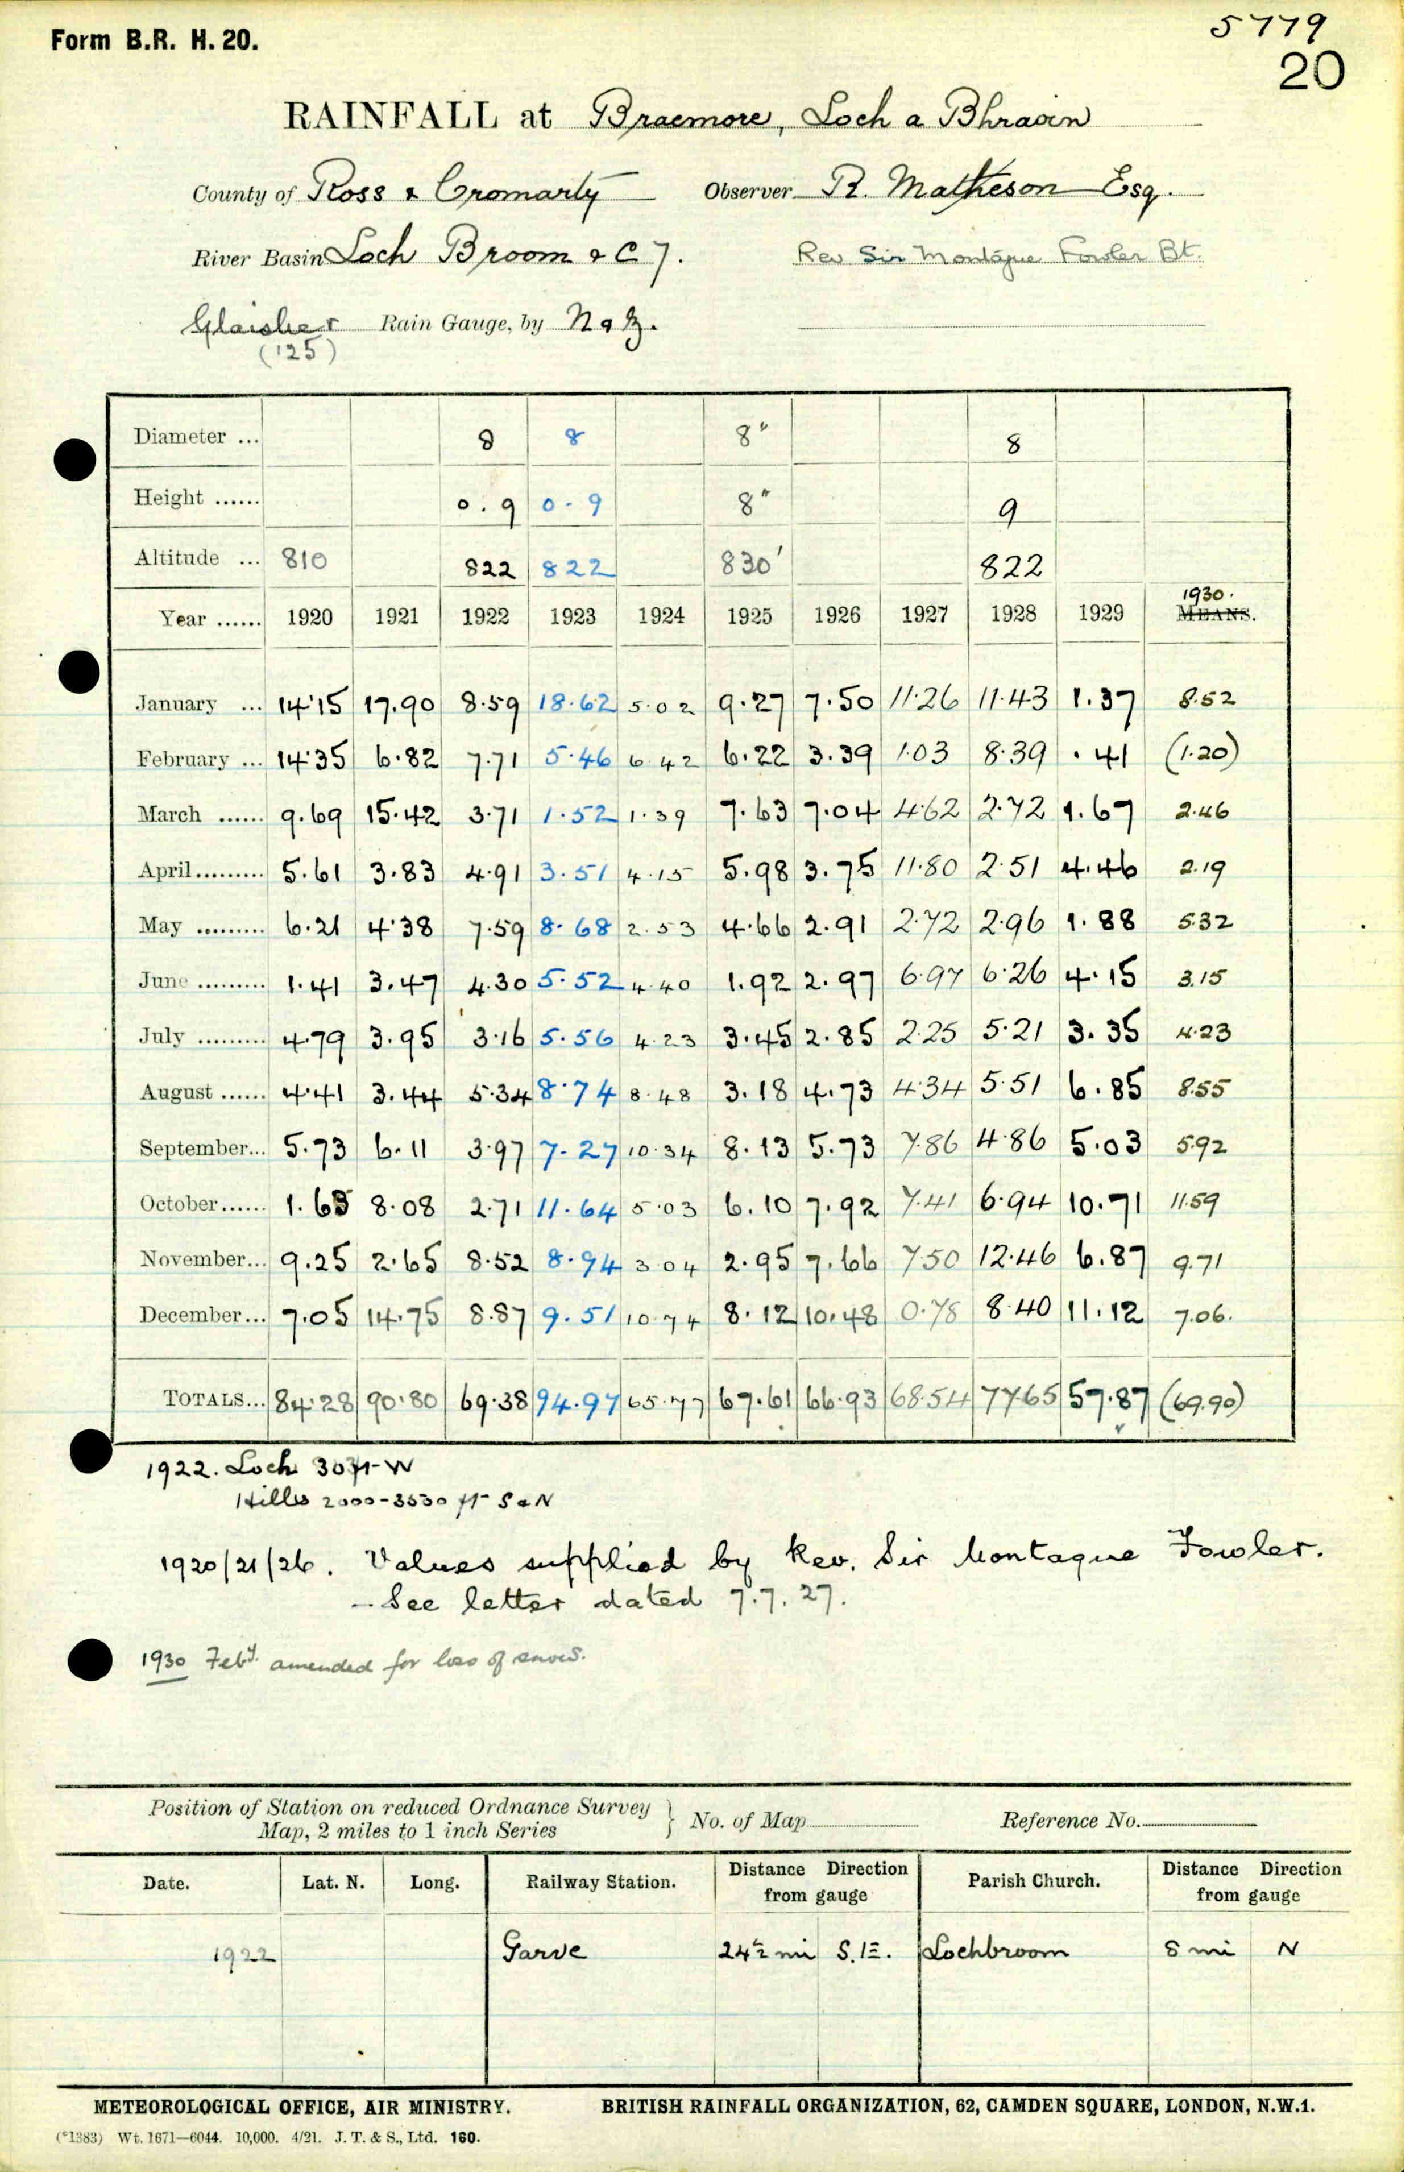 Form B.R. H. 20.
5779
20
RAINFALL at Braemore, Loch a Bhraoin
County of Ross & Cromarty Observer R. Matheson Esq.
River Basin Loch Broom & C 7. Rev Sir Montague Fowler Bt.
Glaisher Rain Gauge, by N & Z.
(125)
Diameter ... 8 8 8" 8
Height ...... 0.9 0.9 8" 9
Altitude ... 810 822 822 830' 822
1930.
Year ...... 1920 1921 1922 1923 1924 1925 1926 1927 1928 1929 MEANS.
January ... 14.15 17.90 8.59 18.62 5.02 9.27 7.50 11.26 11.43 1.37 8.52
February ... 14.35 6.82 7.71 5.46 6.42 6.22 3.39 1.03 8.39 .41 (1.20)
March ...... 9.69 15.42 3.71 1.52 1.39 7.63 7.04 4.62 2.72 1.67 2.46
April......... 5.61 3.83 4.91 3.51 4.15 5.98 3.75 11.80 2.51 4.46 2.19
May ......... 6.21 4.38 7.59 8.68 2.53 4.66 2.91 2.72 2.96 1.88 5.32
June ......... 1.41 3.47 4.30 5.52 4.40 1.92 2.97 6.97 6.26 4.15 3.15
July ......... 4.79 3.95 3.16 5.56 4.23 3.45 2.85 2.25 5.21 3.35 4.23
August ...... 4.41 3.44 5.34 8.74 8.48 3.18 4.73 4.34 5.51 6.85 8.55
September... 5.73 6.11 3.97 7.27 10.34 8.13 5.73 7.86 4.86 5.03 5.92
October...... 1.63 8.08 2.71 11.64 5.03 6.10 7.92 7.41 6.94 10.71 11.59
November... 9.25 2.65 8.52 8.94 3.04 2.95 7.66 7.50 12.46 6.87 9.71
December... 7.05 14.75 8.87 9.51 10.74 8.12 10.48 0.78 8.40 11.12 7.06.
TOTALS... 84.28 90.80 69.38 94.97 65.77 67.61 66.93 68.54 77.65 57.87 (69.90)
1922. Loch 30 ft W
Hills 2000-3530 ft S & N
1920/21/26. Values supplied by Rev. Sir Montague Fowler.
- See letter dated 7.7.27.
1930 Feby. amended for loss of snow.
Position of Station on reduced Ordnance Survey
Map, 2 miles to 1 inch Series } No. of Map Reference No.
Date. Lat. N. Long. Railway Station. Distance Direction from gauge Parish Church. Distance Direction from gauge
1922 Garve 24½ mi S.E. Lochbroom 8 mi N
METEOROLOGICAL OFFICE, AIR MINISTRY. BRITISH RAINFALL ORGANIZATION, 62, CAMDEN SQUARE, LONDON, N.W.1.
(*1383) Wt. 1671—6044. 10,000. 4/21. J. T. & S., Ltd. 160.